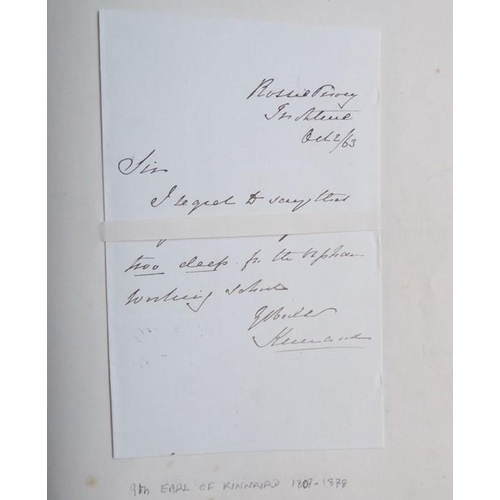 Rossie Priory
Inchture
Oct 2/63
Sir
I regret to say that
too deep for the Orphan
Working School
Yr Obedt
Kinnaird
9th EARL OF KINNAIRD 1807-1878